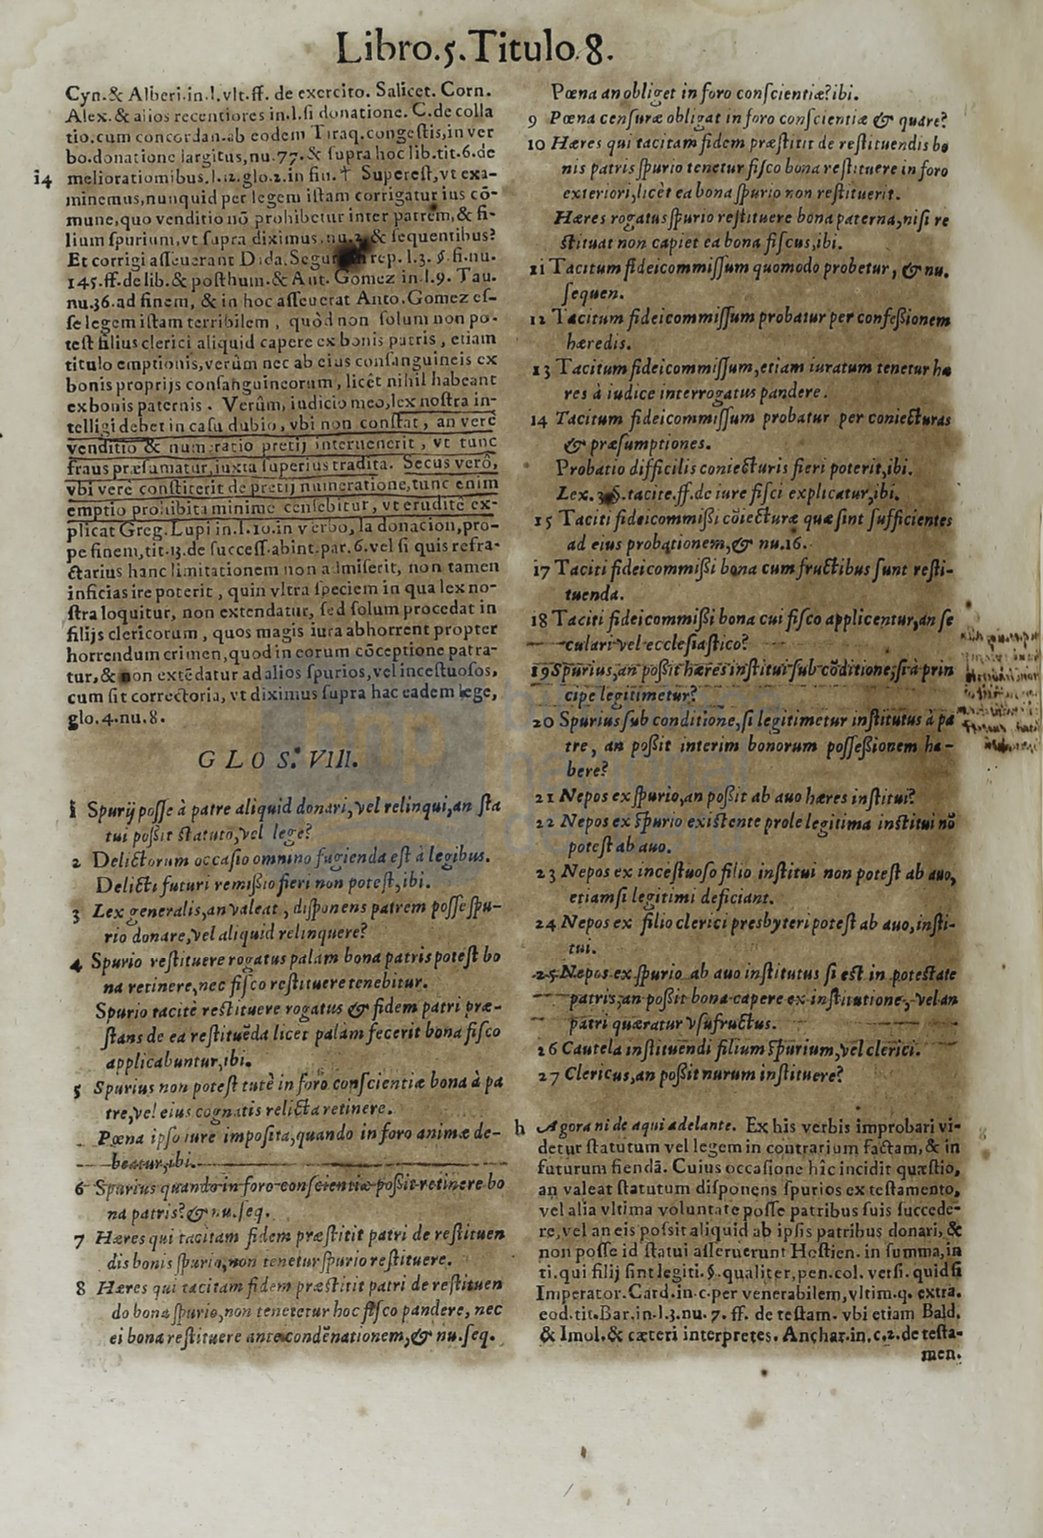 Libro.5.Titulo.8.
Cyn.& Alberi.in.l.vlt.ff. de exercito. Salicet. Corn.
Alex.& alios recentiores in.l.si donatione. C.de colla
tio.cum concordan.ab eodem Tiraq.congestis,in ver
bo.donatione largitus,nu.77.& supra hoc lib.tit.6.de
14 meliorationibus.l.12.glo.2.in fin.† Superest,vt exa-
minemus,nunquid per legem istam corrigatur ius cō-
mune,quo venditio nō prohibetur inter patrem,& fi-
lium spurium,vt supra diximus.nu.2.& sequentibus?
Et corrigi asseuerant Dida.Segur rep. l.3. §.fi.nu.
145.ff.de lib.& posthum.& Ant. Gomez in.l.9. Tau.
nu.36.ad finem, & in hoc asseuerat Anto.Gomez es-
se legem istam terribilem , quòd non solum non po-
test filius clerici aliquid capere ex bonis patris , etiam
titulo emptionis,verùm nec ab eius consanguineis ex
bonis proprijs consanguineorum , licèt nihil habeant
ex bonis paternis . Verùm, iudicio meo,lex nostra in-
telligi debet in casu dubio , vbi non constat , an verè
venditio & numeratio pretij interuenerit , vt tunc
fraus præsumatur,iuxta superius tradita. Secus verò,
vbi verè constiterit de pretij numeratione,tunc enim
emptio prohibita minime censebitur, vt eruditè ex-
plicat Greg. Lupi in.l.10.in verbo, la donacion,pro-
pe finem,tit.13.de success.abint.par.6.vel si quis refra-
ctarius hanc limitationem non admiserit, non tamen
inficias ire poterit , quin vltra speciem in qua lex no-
stra loquitur, non extendatur, sed solum procedat in
filijs clericorum , quos magis iura abhorrent propter
horrendum crimen,quod in eorum cōceptione patra-
tur,& non extēdatur ad alios spurios,vel incestuosos,
cum sit correctoria, vt diximus supra hac eadem lege,
glo.4.nu.8.
GLOS. VIII.
1 Spurij posse à patre aliquid donari,vel relinqui,an sta
tui possit statuto,vel lege?
2 Delictorum occasio omnino fugienda est à legibus.
Delicti futuri remissio fieri non potest,ibi.
3 Lex generalis,an valeat , disponens patrem posse spu-
rio donare,vel aliquid relinquere?
4 Spurio restituere rogatus palàm bona patris potest bo
na retinere,nec fisco restituere tenebitur.
Spurio tacitè restituere rogatus & fidem patri præ-
stans de ea restituēda licet palàm fecerit bona fisco
applicabuntur,ibi.
5 Spurius non potest tutè in foro conscientiæ bona à pa
tre,vel eius cognatis relicta retinere.
Pœna ipso iure imposita,quando in foro animæ de-
beatur,ibi.
6 Spurius quando in foro conscientiæ possit retinere bo
na patris?& nu.seq.
7 Hæres qui tacitam fidem præstitit patri de restituen
dis bonis spurio,non tenetur spurio restituere.
8 Hæres qui tacitam fidem præstitit patri de restituen
do bona spurio,non tenetetur hoc fisco pandere, nec
ei bona restituere ante condēnationem,& nu.seq.
Pœna an obliget in foro conscientiæ?ibi.
9 Pœna censuræ obligat in foro conscientiæ & quare?
10 Hæres qui tacitam fidem præstitit de restituendis bo
nis patris spurio tenetur fisco bona restituere in foro
exteriori,licèt ea bona spurio non restituerit.
Hæres rogatus spurio restituere bona paterna,nisi re
stituat non capiet ea bona fiscus,ibi.
11 Tacitum fideicommissum quomodo probetur , & nu.
sequen.
12 Tacitum fideicommissum probatur per confessionem
hæredis.
13 Tacitum fideicommissum,etiam iuratum tenetur hæ
res à iudice interrogatus pandere.
14 Tacitum fideicommissum probatur per coniecturas
& præsumptiones.
Probatio difficilis coniecturis fieri poterit,ibi.
Lex. 3.§.tacite.ff.de iure fisci explicatur,ibi.
15 Taciti fideicommissi cōiecturæ quæ sint sufficientes
ad eius probationem,& nu.16.
17 Taciti fideicommissi bona cum fructibus sunt resti-
tuenda.
18 Taciti fideicommissi bona cui fisco applicentur,an se
culari vel ecclesiastico?
19 Spurius,an possit hæres institui sub cōditione,si à prin
cipe legitimetur?
20 Spurius sub conditione,si legitimetur institutus à pa
tre, an possit interim bonorum possessionem ha-
bere?
21 Nepos ex spurio,an possit ab auo hæres institui?
22 Nepos ex spurio existente prole legitima institui nō
potest ab auo.
23 Nepos ex incestuoso filio institui non potest ab auo,
etiamsi legitimi deficiant.
24 Nepos ex filio clerici presbyteri potest ab auo,insti-
tui.
25 Nepos ex spurio ab auo institutus si est in potestate
patris,an possit bona capere ex institutione, vel an
patri quæratur vsufructus.
26 Cautela instituendi filium spurium,vel clerici.
27 Clericus,an possit nurum instituere?
h Agora ni de aqui adelante. Ex his verbis improbari vi-
detur statutum vel legem in contrarium factam,& in
futurum fiendā. Cuius occasione hîc incidit quæstio,
an valeat statutum disponens spurios ex testamento,
vel alia vltima voluntate posse patribus suis succede-
re,vel an eis possit aliquid ab ipsis patribus donari, &
non posse id statui asseruerunt Hostien. in summa,in
ti.qui filij sint legiti.§.qualiter,pen.col. versi. quid si
Imperator.Card.in.c.per venerabilem,vltim.q. extra.
eod.tit.Bar.in.l.3.nu.7. ff. de testam. vbi etiam Bald.
& Imol.& cæteri interpretes. Anchar.in.c.2.de testa-
men.